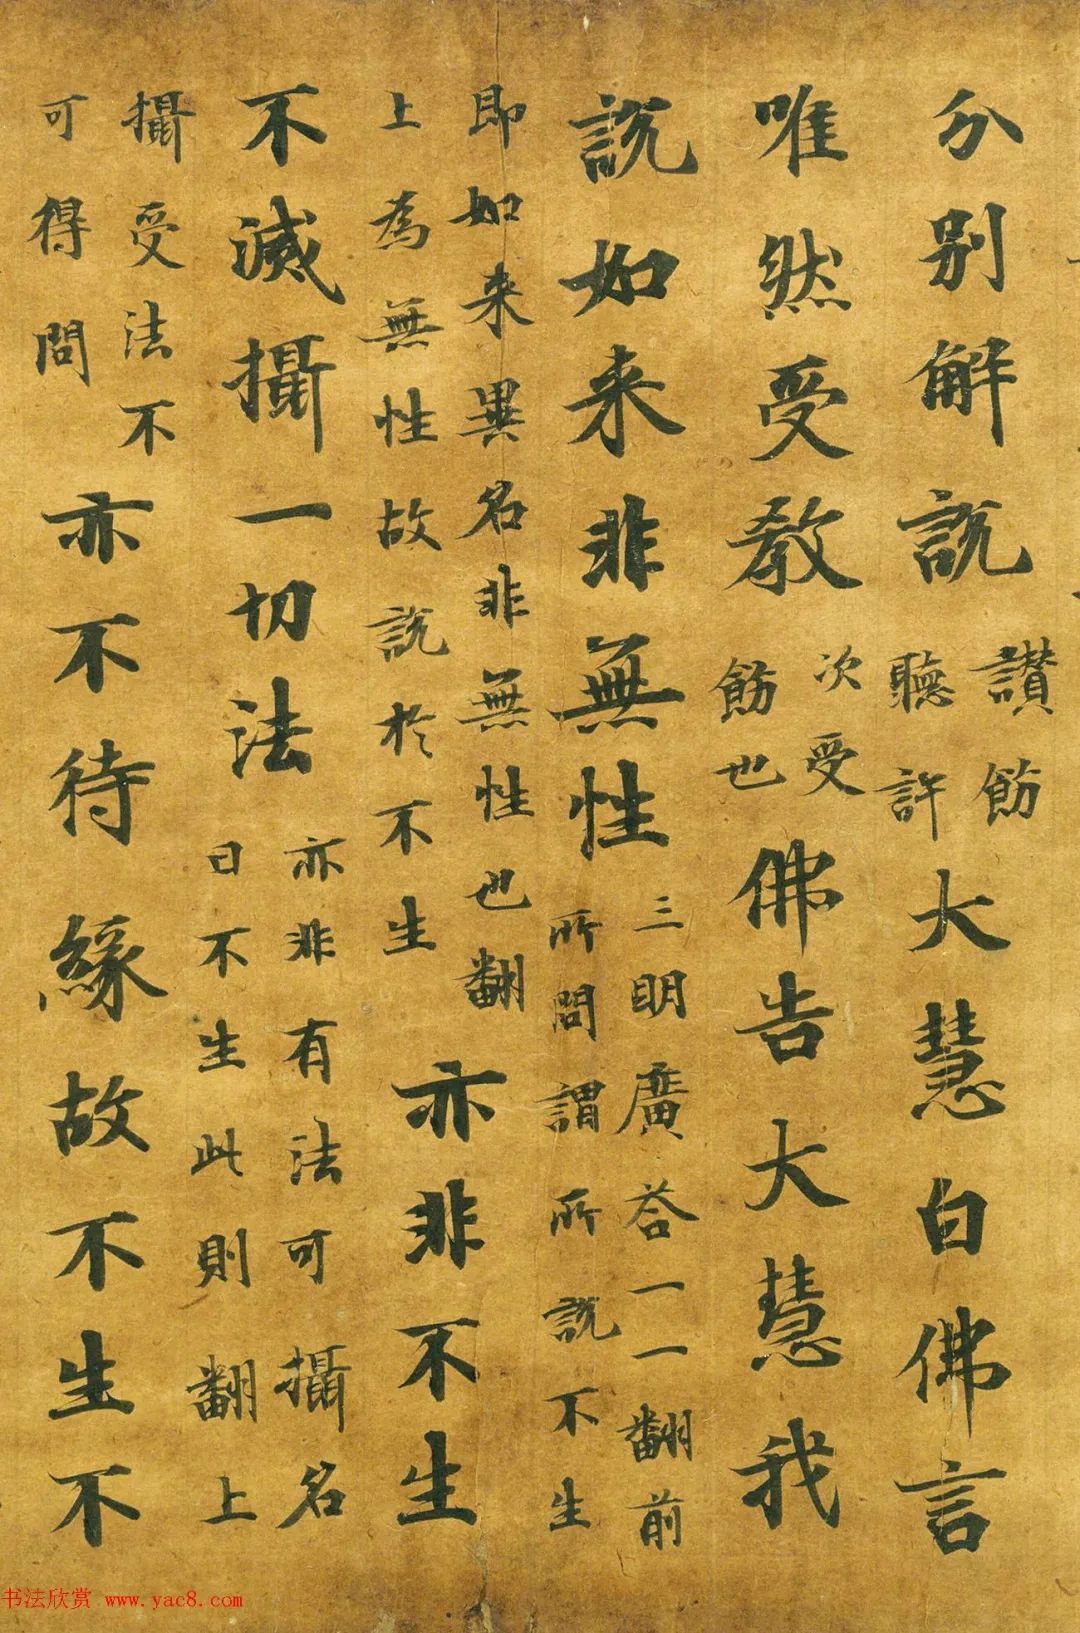 分別解說
讃飭
聽許
大慧白佛言
唯然受教
次受
飭也
佛告大慧我
說如来非無性
三明廣荅一一翻前
所問謂所說不生
即如来異名非無性也翻
上為無性故說於不生
亦非不生
不滅攝一切法
亦非有法可攝名
曰不生此則翻上
攝受法不
可得問
亦不待緣故不生不
书法欣赏 www.yac8.com